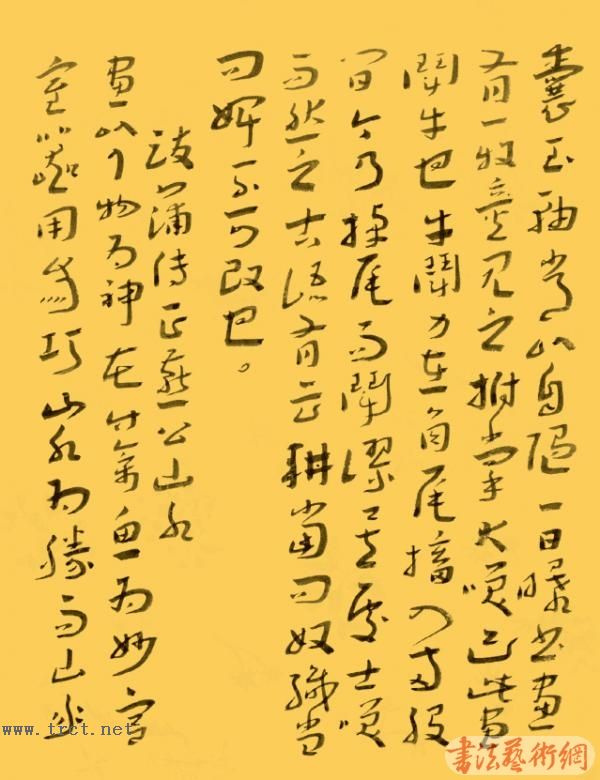 囊玉軸常以自隨一日曝書畫
有一牧童見之拊掌大笑曰此畫
鬥牛也牛鬥力在角尾搐入兩股
間今乃掉尾而鬥謬矣處士笑
而然之古語有云耕當問奴織當
問婢不可改也。
跋蒲傳正燕公山水
畫以人物為神花竹禽魚為妙宮
室器用為巧山水為勝而山水
www.trct.net
書法藝術網